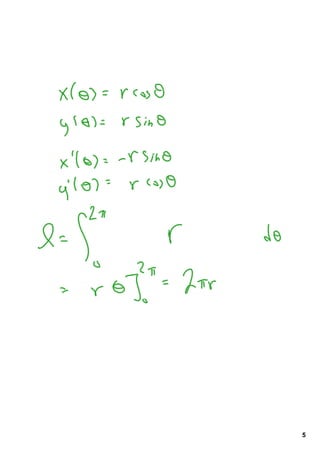 x(θ) = r cos θ
y(θ) = r sin θ
x'(θ) = -r sin θ
y'(θ) = r cos θ
l = ∫₀^2π r dθ
= r θ]₀^2π = 2πr
5